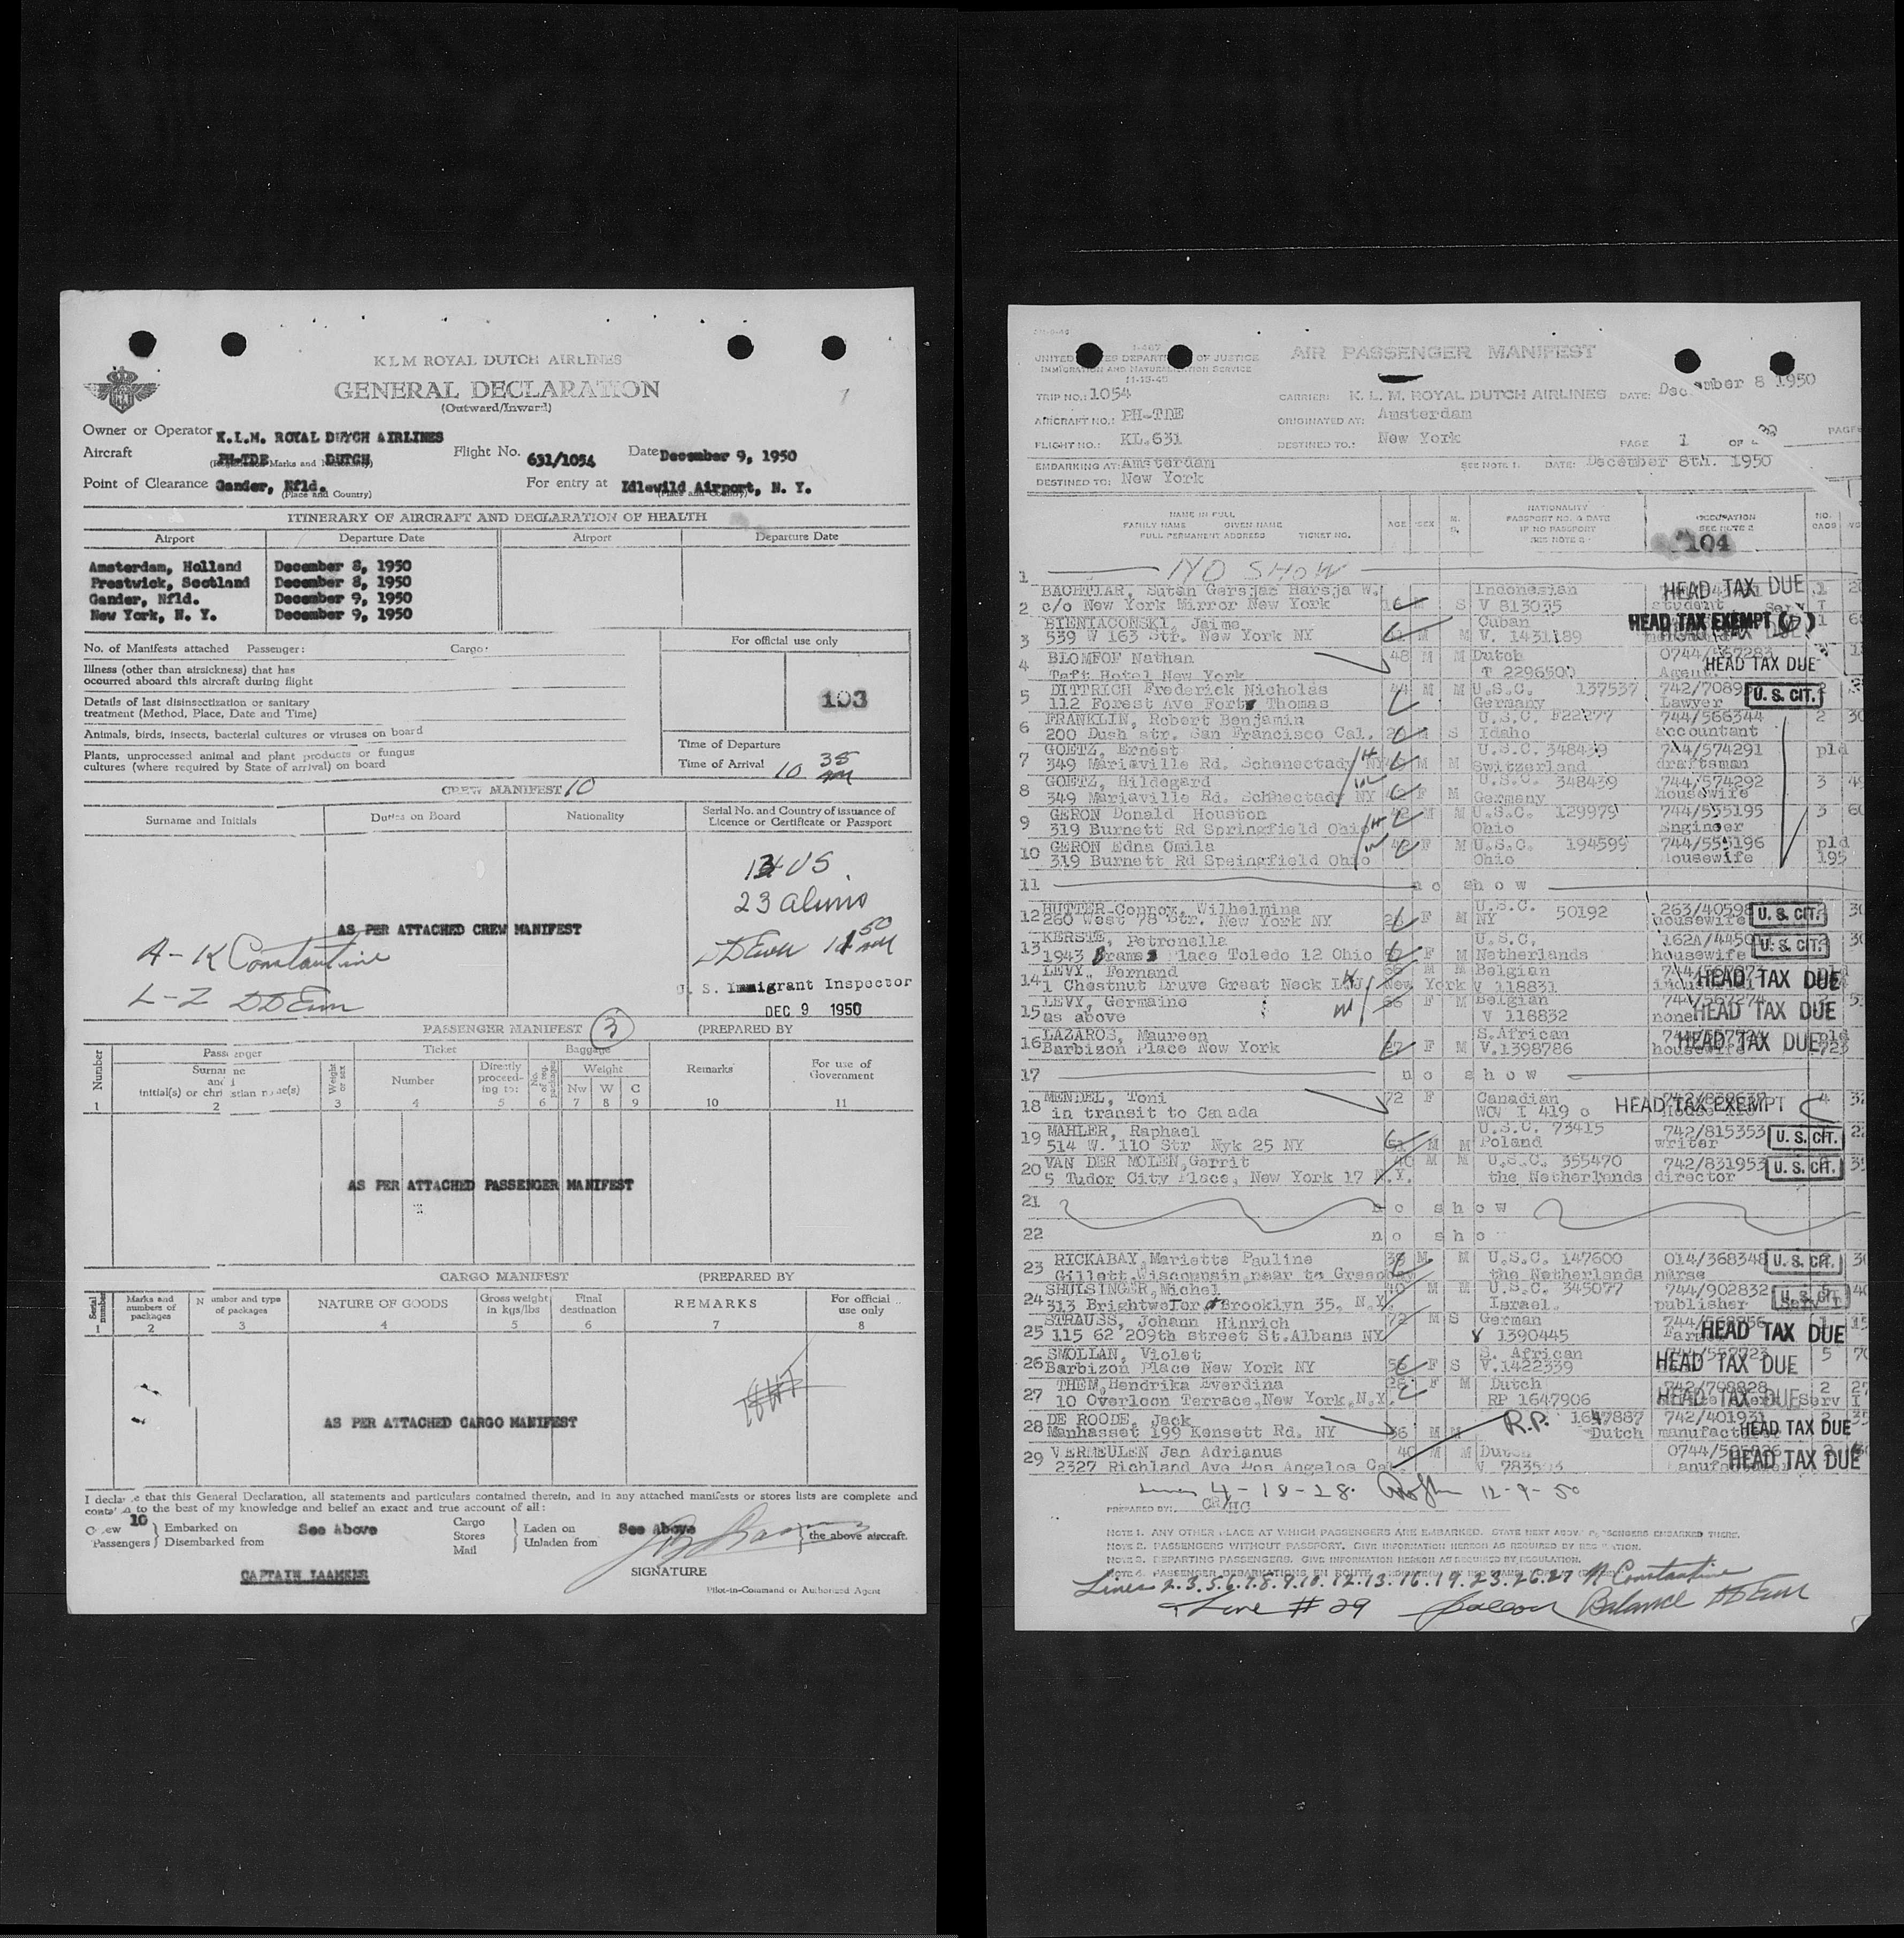 K L M ROYAL DUTCH AIRLINES
GENERAL DECLARATION
(Outward/Inward)
Owner or Operator K.L.M. ROYAL DUTCH AIRLINES
Aircraft PH-TDE DUTCH Flight No. 631/1054 Date December 9, 1950
Point of Clearance Gander, Nfld. (Place and Country) For entry at Idlewild Airport, N. Y.
ITINERARY OF AIRCRAFT AND DECLARATION OF HEALTH
Airport Departure Date Airport Departure Date
Amsterdam, Holland December 8, 1950
Prestwick, Scotland December 8, 1950
Gander, Nfld. December 9, 1950
New York, N. Y. December 9, 1950
No. of Manifests attached Passenger: Cargo: For official use only
Illness (other than airsickness) that has
occurred aboard this aircraft during flight
Details of last disinsectization or sanitary
treatment (Method, Place, Date and Time)
103
Animals, birds, insects, bacterial cultures or viruses on board
Plants, unprocessed animal and plant products or fungus
cultures (where required by State of arrival) on board
Time of Departure
Time of Arrival 10 38 AM
CREW MANIFEST 10
Surname and Initials Duties on Board Nationality Serial No. and Country of issuance of
Licence or Certificate or Passport
US
23 aliens
AS PER ATTACHED CREW MANIFEST
A-K Constantine
L-Z
U. S. Immigrant Inspector
DEC 9 1950
PASSENGER MANIFEST 3 (PREPARED BY
Number Passenger Ticket Baggage Remarks For use of Government
Surname and initial(s) or christian name(s) Weight or sex Number Directly proceeding to: No. of reg. packages Weight
Nw W C
1 2 3 4 5 6 7 8 9 10 11
AS PER ATTACHED PASSENGER MANIFEST
CARGO MANIFEST (PREPARED BY
Serial number Marks and numbers of packages Number and type of packages NATURE OF GOODS Gross weight in kgs/lbs Final destination REMARKS For official use only
1 2 3 4 5 6 7 8
AS PER ATTACHED CARGO MANIFEST
I declare that this General Declaration, all statements and particulars contained therein, and in any attached manifests or stores lists are complete and
to the best of my knowledge and belief an exact and true account of all:
Crew 10 Passengers Embarked on Disembarked from See Above Cargo Stores Mail Laden on Unladen from See Above the above aircraft.
CAPTAIN LAAMSER SIGNATURE
Pilot-in-Command or Authorized Agent
UNITED STATES DEPARTMENT OF JUSTICE
IMMIGRATION AND NATURALIZATION SERVICE
AIR PASSENGER MANIFEST
TRIP NO.: 1054 CARRIER: K. L. M. ROYAL DUTCH AIRLINES DATE: December 8 1950
AIRCRAFT NO.: PH-TDE ORIGINATED AT: Amsterdam
FLIGHT NO.: KL.631 DESTINED TO: New York PAGE 1 OF
EMBARKING AT: Amsterdam SEE NOTE 1. DATE: December 8th. 1950
DESTINED TO: New York
NAME IN FULL
FAMILY NAME GIVEN NAME
FULL PERMANENT ADDRESS TICKET NO.
AGE SEX NATIONALITY
PASSPORT NO. & DATE
IF NO PASSPORT
SEE NOTE 2
OCCUPATION
SEE NOTE 2
104
1 NO SHOW
BACHTIAR, Sutan Gersjac Harsja W. Indonesian HEAD TAX DUE 1
2 c/o New York Mirror New York S V 813035 student
BIENIACONSKI, Jaime Cuban HEAD TAX EXEMPT
3 539 W 163 Str. New York NY M V. 1431189
4 BLOMFOF Nathan 48 M M Dutch 0744/557283
Taft Hotel New York T 2296500 Agent HEAD TAX DUE
5 DITTRICH Frederick Nicholas 44 M M U.S.C. 137537 742/7089 U. S. CIT.
112 Forest Ave Fort Thomas Germany Lawyer
FRANKLIN, Robert Benjamin U.S.C. F22277 744/566344 2
6 200 Dush str. San Francisco Cal. M S Idaho accountant
7 GOETZ, Ernest U.S.C. 348439 744/574291 pld
349 Mariaville Rd. Schenectady NY M M Switzerland draftsman
8 GOETZ, Hildegard U.S.C. 348439 744/574292 3
349 Mariaville Rd. Schenectady NY F M Germany Housewife
9 GERON Donald Houston M M U.S.C. 129975 744/555195 3
319 Burnett Rd Springfield Ohio Ohio Engineer
10 GERON Edna Omila 42 F M U.S.C. 194595 744/555196 pld
319 Burnett Rd Speingfield Ohio Ohio housewife 195
11 no show
12 HUTTER-Conroy, Wilhelmina F M U.S.C. 50192 263/40598 U. S. CIT.
260 West 78 Str. New York NY NY housewife
KERSTE, Petronella U.S.C. 162A/4450 U. S. CIT.
13 1943 Brames Place Toledo 12 Ohio F M Netherlands housewife
LEVY, Fernand 66 M M Belgian
14 1 Chestnut Druve Great Neck L.I. New York V 118831 HEAD TAX DUE
15 LEVY, Germaine 66 F M Belgian
as above V 118832 none HEAD TAX DUE
LAZAROS, Maureen S.African
16 Barbizon Place New York 27 F M V.1398786 HEAD TAX DUE
17 no show
18 MENDEL, Toni 72 F Canadian
in transit to Canada WOV I 419 o HEAD TAX EXEMPT
19 MAHLER, Raphael U.S.C. 73415 742/815353 U. S. CIT.
514 W. 110 Str Nyk 25 NY 51 M M Poland writer
20 VAN DER MOLEN, Gerrit 40 M M U.S.C. 355470 742/831953 U. S. CIT.
5 Tudor City Place, New York 17 N.Y. the Netherlands director
21 no show
22 no sho
23 RICKABAY, Mariette Pauline 38 M M U.S.C. 147600 014/368348 U. S. CIT.
Gillett Wisconsin near to Greenbay the Netherlands nurse
24 SHULSINGER, Michel 40 M M U.S.C. 345077 744/902832 U. S. CIT.
313 Brooklyn 35, N.Y. Israel. publisher
25 STRAUSS, Johann Hinrich 72 M S German
115 62 209th street St.Albans NY V 1390445 HEAD TAX DUE
SMOLLAN, Violet S. African 5
26 Barbizon Place New York NY 56 F S V.1422339 HEAD TAX DUE
27 THEM, Hendrika Everdina F M Dutch 742/708828 2
10 Overloon Terrace, New York, N.Y. RP 1647906 HEAD TAX DUE
DE ROODE, Jack R.P. 1647887 742/401931
28 Manhasset 199 Kensett Rd. NY 36 M M Dutch HEAD TAX DUE
29 VERMEULEN Jan Adrianus 40 M M Dutch
2327 Richland Ave Los Angelos Cal. HEAD TAX DUE
Lines 4-18-28. 12-9-50
PREPARED BY: CR/HC
NOTE 1. ANY OTHER PLACE AT WHICH PASSENGERS ARE EMBARKED. STATE NEXT ABOVE PASSENGERS EMBARKED THERE.
NOTE 2. PASSENGERS WITHOUT PASSPORT. GIVE INFORMATION HEREON AS REQUIRED BY REGULATION.
NOTE 3. DEPARTING PASSENGERS. GIVE INFORMATION HEREON AS REQUIRED BY REGULATION.
Lines 2.3.5.6.7.8.9.10.12.13.16.19.23.26.27 A Constantine
Line #29 Balance